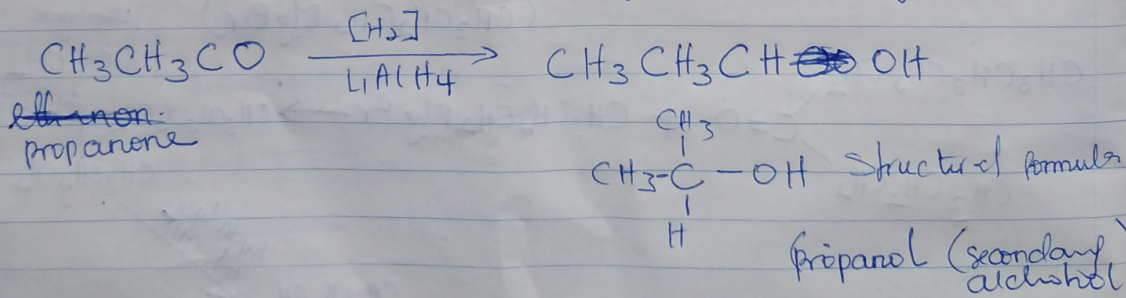 CH3CH3CO [H2] LiAlH4 → CH3CH3CH OH
propanone
CH3
CH3-C-OH Structural formula
H
propanol (secondary
alchohol